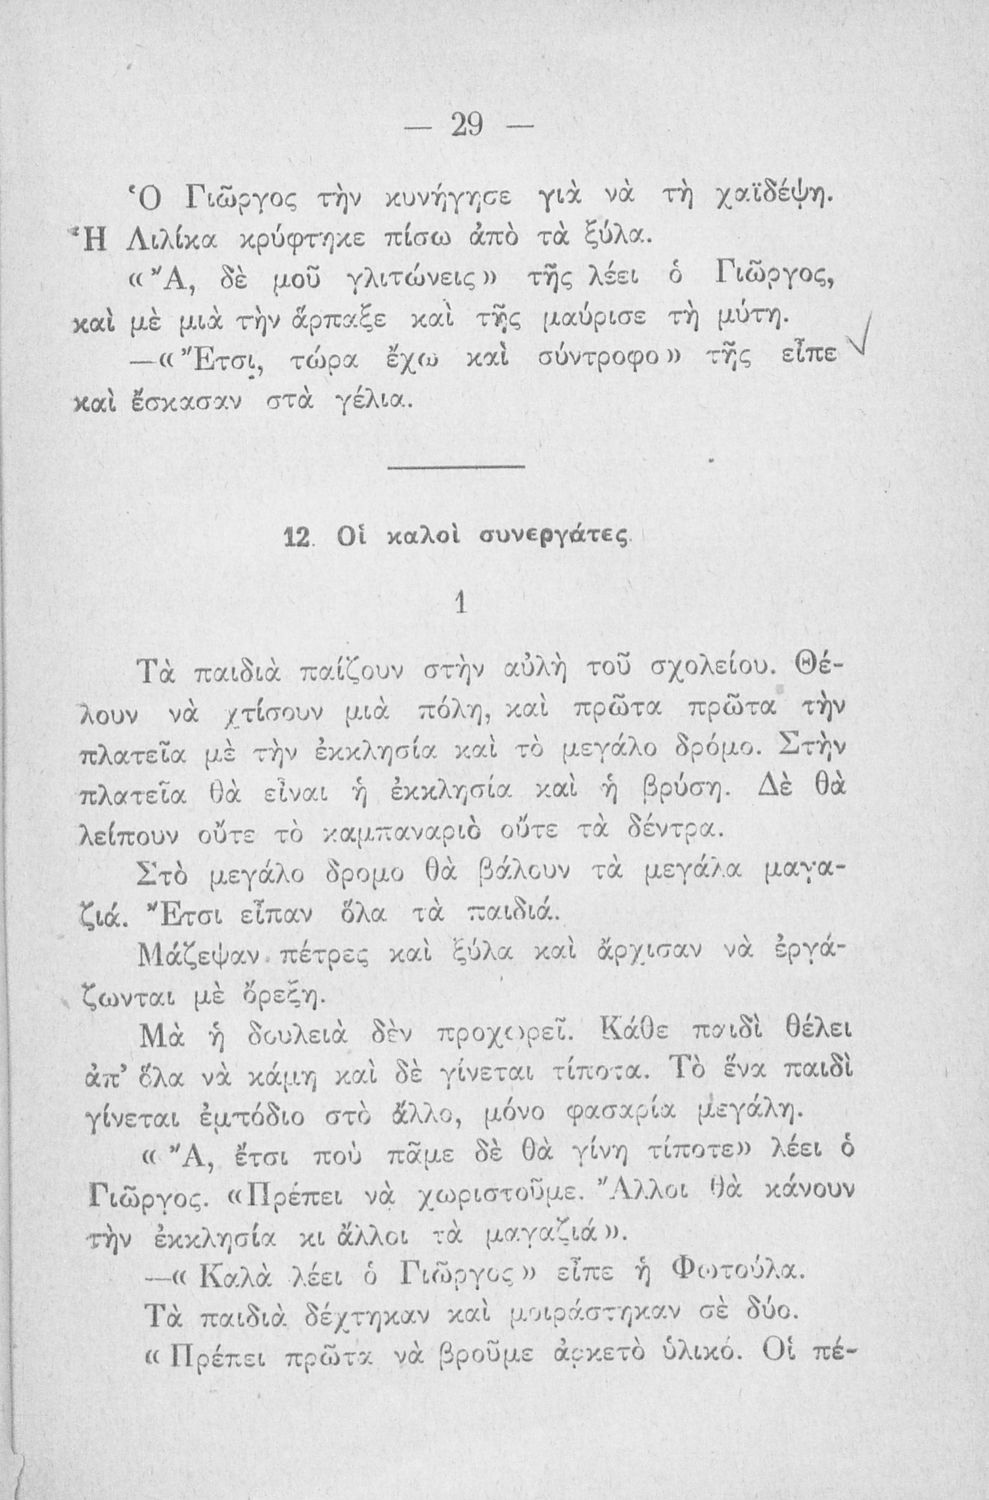 — 29 —
Ὁ Γιῶργος τὴν κυνήγησε γιὰ νὰ τὴ χαϊδέψη.
Ἡ Λιλίκα κρύφτηκε πίσω ἀπὸ τὰ ξύλα.
«Ἄ, δὲ μοῦ γλιτώνεις» τῆς λέει ὁ Γιῶργος,
καὶ μὲ μιὰ τὴν ἅρπαξε καὶ τῆς μαύρισε τὴ μύτη.
—«Ἔτσι, τώρα ἔχω καὶ σύντροφο» τῆς εἶπε
καὶ ἔσκασαν στὰ γέλια.
12. Οἱ καλοὶ συνεργάτες.
1
Τὰ παιδιὰ παίζουν στὴν αὐλὴ τοῦ σχολείου. Θέ-
λουν νὰ χτίσουν μιὰ πόλη, καὶ πρῶτα πρῶτα τὴν
πλατεῖα μὲ τὴν ἐκκλησία καὶ τὸ μεγάλο δρόμο. Στὴν
πλατεῖα θὰ εἶναι ἡ ἐκκλησία καὶ ἡ βρύση. Δὲ θὰ
λείπουν οὔτε τὸ καμπαναριὸ οὔτε τὰ δέντρα.
Στὸ μεγάλο δρομο θὰ βάλουν τὰ μεγάλα μαγα-
ζιά. Ἔτσι εἶπαν ὅλα τὰ παιδιά.
Μάζεψαν πέτρες καὶ ξύλα καὶ ἄρχισαν νὰ ἐργά-
ζωνται μὲ ὄρεξη.
Μὰ ἡ δουλειὰ δὲν προχωρεῖ. Κάθε παιδὶ θέλει
ἀπ’ ὅλα νὰ κάμη καὶ δὲ γίνεται τίποτα. Τὸ ἕνα παιδὶ
γίνεται ἐμπόδιο στὸ ἄλλο, μόνο φασαρία μεγάλη.
«Ἄ, ἔτσι ποὺ πᾶμε δὲ θὰ γίνη τίποτε» λέει ὁ
Γιῶργος. «Πρέπει νὰ χωριστοῦμε. Ἄλλοι θὰ κάνουν
τὴν ἐκκλησία κι ἄλλοι τὰ μαγαζιά».
—«Καλὰ λέει ὁ Γιῶργος» εἶπε ἡ Φωτούλα.
Τὰ παιδιὰ δέχτηκαν καὶ μοιράστηκαν σὲ δύο.
«Πρέπει πρῶτα νὰ βροῦμε ἀρκετὸ ὑλικό. Οἱ πέ-